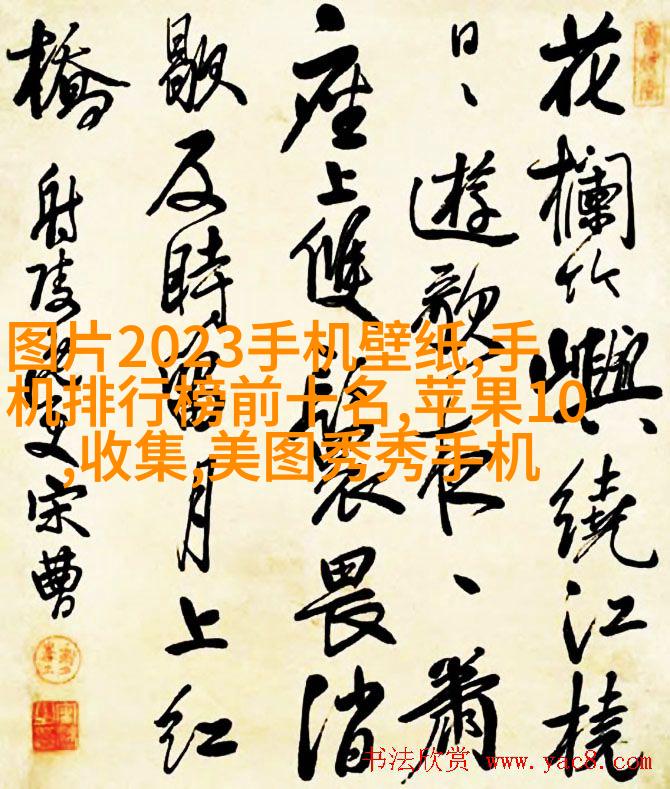 花欄竹嶼繞江橈
日、遊歌夜、簫
座上雙畏消
歇反時留月上紅
橋 射陵逸史宋曹
图片2023手机壁纸,手
机排行榜前十名,苹果10
,收集,美图秀秀手机
书法欣赏 www.yac8.com